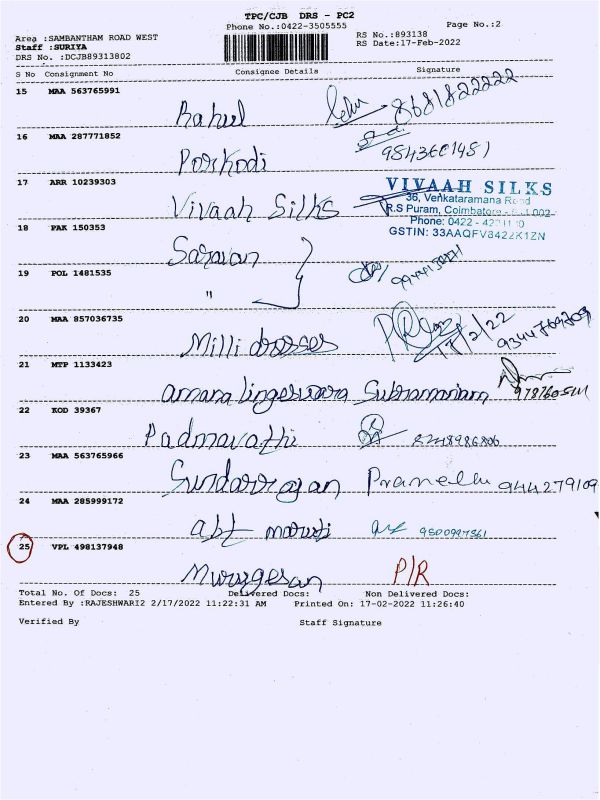 TPC/CJB DRS - PC2
Phone No.:0422-3505555 Page No.:2
Area :SAMBANTHAM ROAD WEST RS No.:893138
Staff :SURIYA RS Date:17-Feb-2022
DRS No. :DCJB89313802
S No Consignment No Consignee Details Signature
15 MAA 563765991
Rahul 8681822222
16 MAA 287771852
Porkodi
17 ARR 10239303
Vivaah Silks
VIVAAH SILKS
36, Venkataramana Road
R.S Puram, Coimbatore
Phone: 0422 -
GSTIN: 33AAQFV8422K1ZN
18 PAK 150353
Saravan
19 POL 1481535
"
20 MAA 857036735
Milli dresses 17/2/22 9344769709
21 MTP 1133423
amaralingeswara Subramaniam
22 KOD 39367
Padmavathi
23 MAA 563765966
Sundarrajan 944279109
24 MAA 285999172
abt maruti
25 VPL 498137948
Murugesan P/R
Total No. Of Docs: 25 Delivered Docs: Non Delivered Docs:
Entered By :RAJESHWARI2 2/17/2022 11:22:31 AM Printed On: 17-02-2022 11:26:40
Verified By Staff Signature